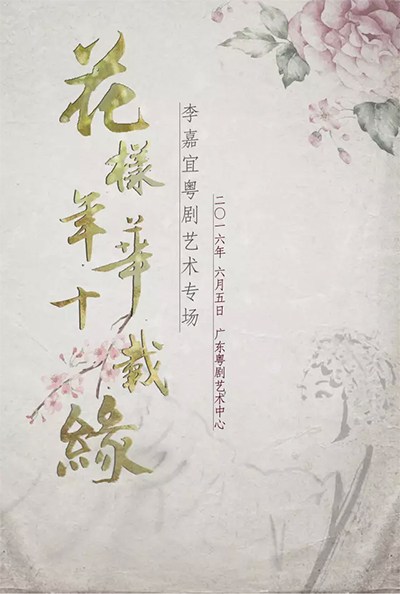 花樣年華十載緣
李嘉宜粤剧艺术专场
二〇一六年 六月五日 广东粤剧艺术中心